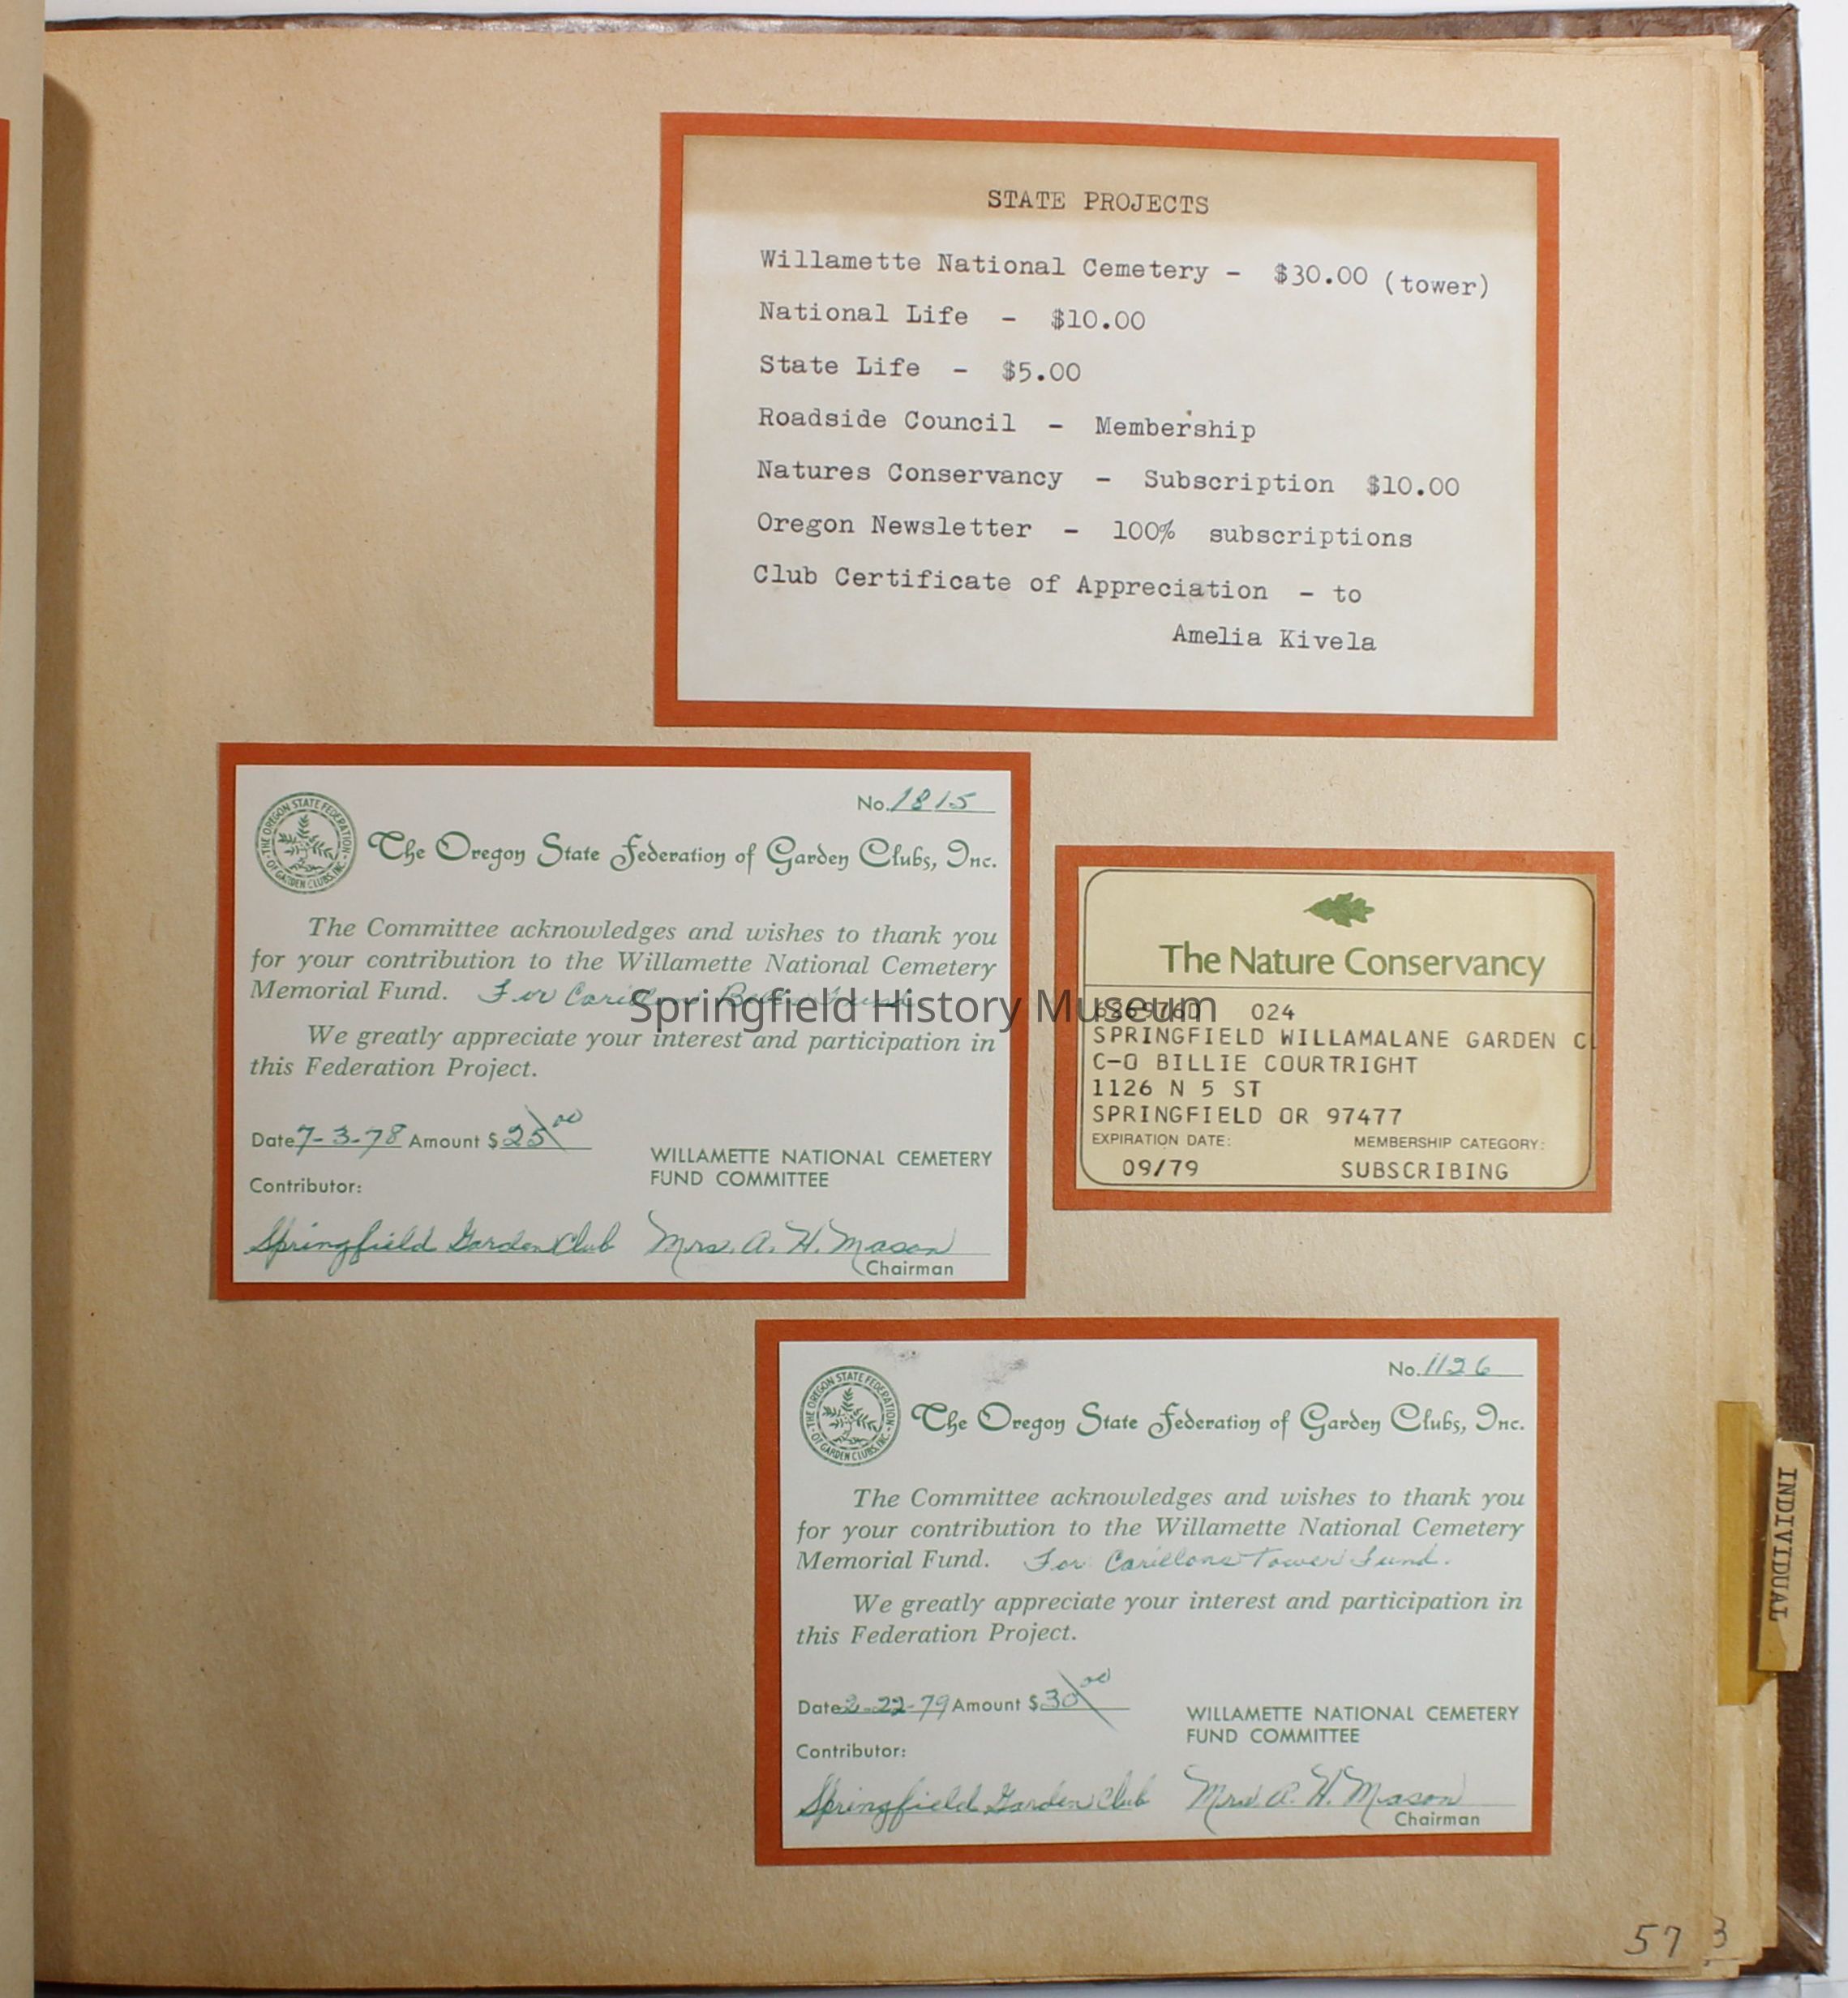 STATE PROJECTS
Willamette National Cemetery - $30.00 (tower)
National Life - $10.00
State Life - $5.00
Roadside Council - Membership
Natures Conservancy - Subscription $10.00
Oregon Newsletter - 100% subscriptions
Club Certificate of Appreciation - to
Amelia Kivela
No. 1815
THE OREGON STATE FEDERATION OF GARDEN CLUBS, INC.
The Oregon State Federation of Garden Clubs, Inc.
The Committee acknowledges and wishes to thank you
for your contribution to the Willamette National Cemetery
Memorial Fund. For Fund
We greatly appreciate your interest and participation in
this Federation Project.
Date 7-3-78 Amount $ 25 00
WILLAMETTE NATIONAL CEMETERY
FUND COMMITTEE
Contributor:
Springfield Garden Club Mrs. A. H. Mason
Chairman
The Nature Conservancy
024
SPRINGFIELD WILLAMALANE GARDEN CL
C-O BILLIE COURTRIGHT
1126 N 5 ST
SPRINGFIELD OR 97477
EXPIRATION DATE: MEMBERSHIP CATEGORY:
09/79 SUBSCRIBING
Springfield History Museum
No. 1126
THE OREGON STATE FEDERATION OF GARDEN CLUBS, INC.
The Oregon State Federation of Garden Clubs, Inc.
The Committee acknowledges and wishes to thank you
for your contribution to the Willamette National Cemetery
Memorial Fund. For Carillons Tower Fund.
We greatly appreciate your interest and participation in
this Federation Project.
Date 2-22-79 Amount $ 30 00
WILLAMETTE NATIONAL CEMETERY
FUND COMMITTEE
Contributor:
Springfield Garden Club Mrs. A. H. Mason
Chairman
INDIVIDUAL
57 3